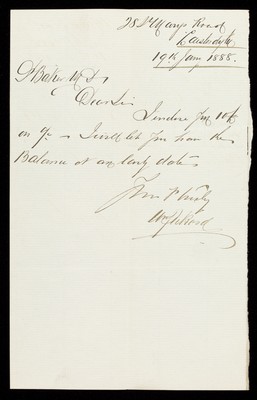 25 St Marys Road
19th Jany 1888.
Baker M.D.
Dear Sir
I enclose you 10/
on a/c I will let you have the
Balance at an early date
Yours truly